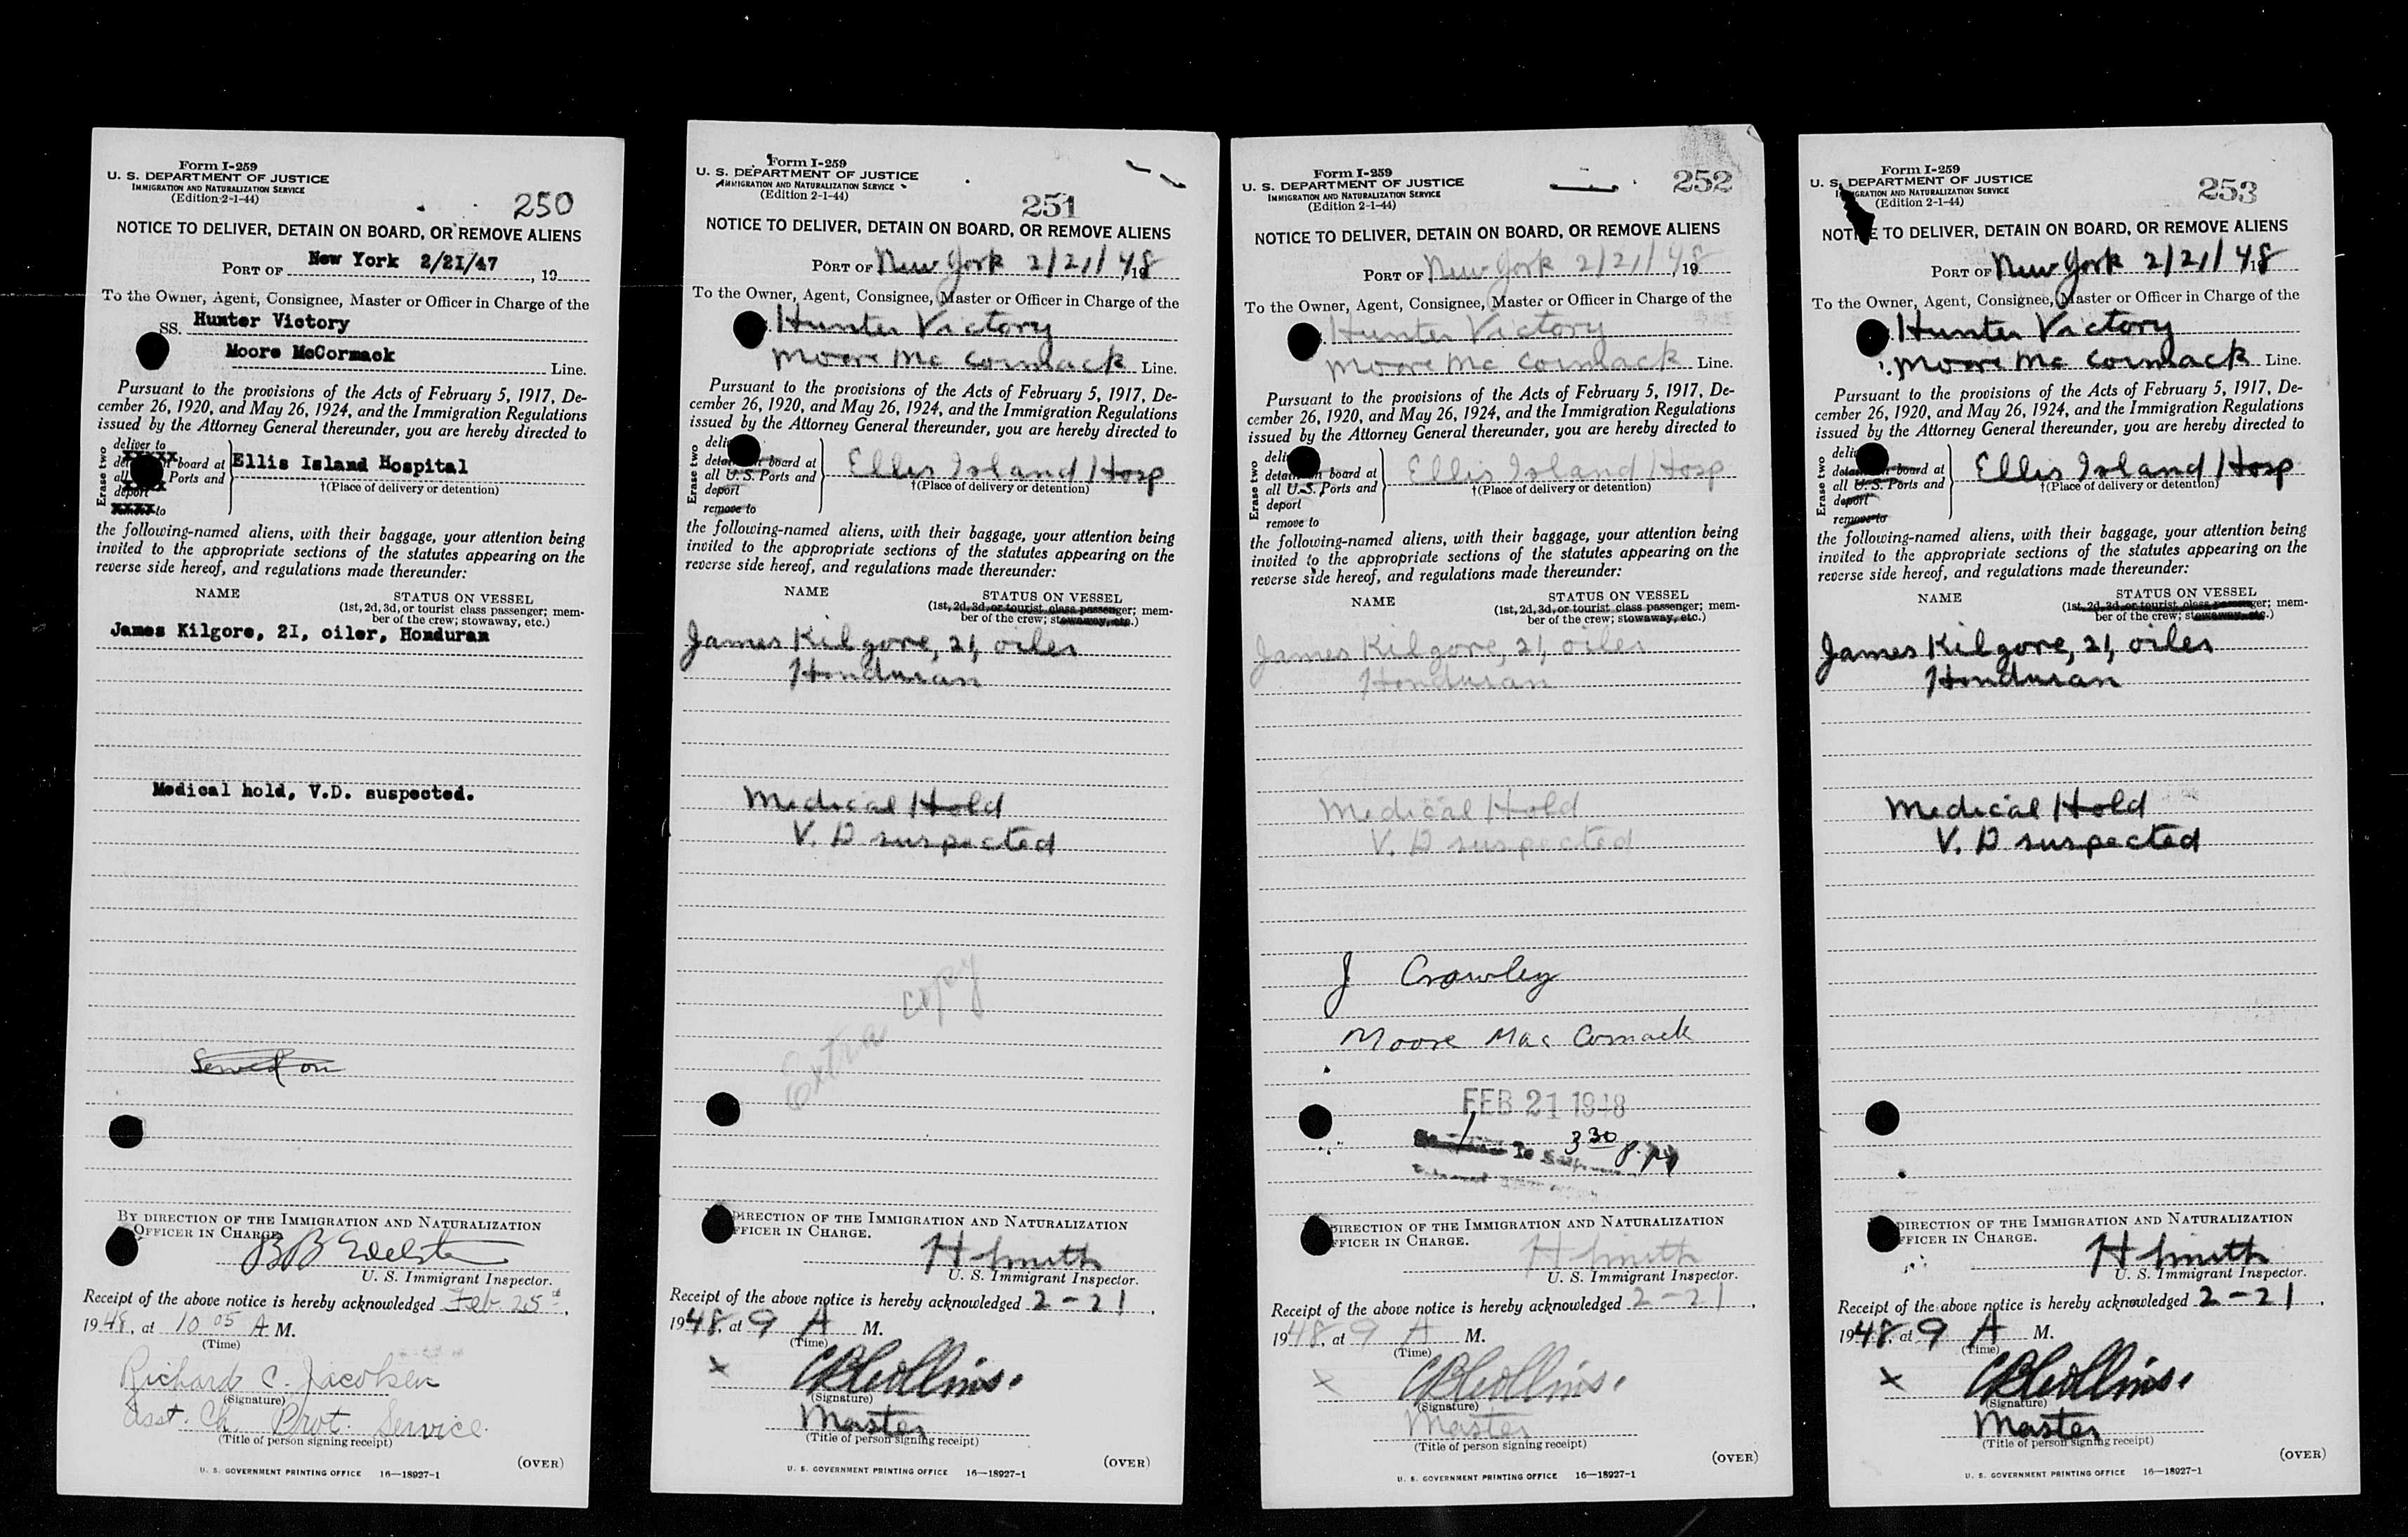 Form I-259
U. S. DEPARTMENT OF JUSTICE
IMMIGRATION AND NATURALIZATION SERVICE
(Edition 2-1-44)
250
NOTICE TO DELIVER, DETAIN ON BOARD, OR REMOVE ALIENS
PORT OF New York 2/21/47, 19
To the Owner, Agent, Consignee, Master or Officer in Charge of the
SS. Hunter Victory
Moore McCormack Line.
Pursuant to the provisions of the Acts of February 5, 1917, De-
cember 26, 1920, and May 26, 1924, and the Immigration Regulations
issued by the Attorney General thereunder, you are hereby directed to
Erase two
deliver to
board at
all Ports and
deport
to
Ellis Island Hospital
†(Place of delivery or detention)
the following-named aliens, with their baggage, your attention being
invited to the appropriate sections of the statutes appearing on the
reverse side hereof, and regulations made thereunder:
NAME STATUS ON VESSEL
(1st, 2d, 3d, or tourist class passenger; mem-
ber of the crew; stowaway, etc.)
James Kilgore, 21, oiler, Honduran
Medical hold, V.D. suspected.
Served on
BY DIRECTION OF THE IMMIGRATION AND NATURALIZATION
OFFICER IN CHARGE.
U. S. Immigrant Inspector.
Receipt of the above notice is hereby acknowledged Feb. 25th,
1948, at 10 05 A M.
(Time)
Richard C. Jacobsen
(Signature)
Asst. Ch. Prot. Service
(Title of person signing receipt)
(OVER)
U. S. GOVERNMENT PRINTING OFFICE 16—18927-1
Form I-259
U. S. DEPARTMENT OF JUSTICE
IMMIGRATION AND NATURALIZATION SERVICE
(Edition 2-1-44)
251
NOTICE TO DELIVER, DETAIN ON BOARD, OR REMOVE ALIENS
PORT OF New York 2/21/48 19
To the Owner, Agent, Consignee, Master or Officer in Charge of the
Hunter Victory
Moore Mc Cormack Line.
Pursuant to the provisions of the Acts of February 5, 1917, De-
cember 26, 1920, and May 26, 1924, and the Immigration Regulations
issued by the Attorney General thereunder, you are hereby directed to
Erase two
board at
all U. S. Ports and
deport
remove to
Ellis Island Hosp
†(Place of delivery or detention)
the following-named aliens, with their baggage, your attention being
invited to the appropriate sections of the statutes appearing on the
reverse side hereof, and regulations made thereunder:
NAME STATUS ON VESSEL
(1st, 2d, 3d, or tourist class passenger; mem-
ber of the crew; stowaway, etc.)
James Kilgore, 21, oiler
Honduran
Medical Hold
V. D suspected
Extra copy
DIRECTION OF THE IMMIGRATION AND NATURALIZATION
OFFICER IN CHARGE.
H Smith
U. S. Immigrant Inspector.
Receipt of the above notice is hereby acknowledged 2-21,
1948, at 9 A M.
(Time)
x CB Collins.
(Signature)
Master
(Title of person signing receipt)
(OVER)
U. S. GOVERNMENT PRINTING OFFICE 16—18927-1
Form I-259
U. S. DEPARTMENT OF JUSTICE
IMMIGRATION AND NATURALIZATION SERVICE
(Edition 2-1-44)
252
NOTICE TO DELIVER, DETAIN ON BOARD, OR REMOVE ALIENS
PORT OF New York 2/21/48 19
To the Owner, Agent, Consignee, Master or Officer in Charge of the
Hunter Victory
Moore Mc Cormack Line.
Pursuant to the provisions of the Acts of February 5, 1917, De-
cember 26, 1920, and May 26, 1924, and the Immigration Regulations
issued by the Attorney General thereunder, you are hereby directed to
Erase two
board at
all U. S. Ports and
deport
remove to
Ellis Island Hosp
†(Place of delivery or detention)
the following-named aliens, with their baggage, your attention being
invited to the appropriate sections of the statutes appearing on the
reverse side hereof, and regulations made thereunder:
NAME STATUS ON VESSEL
(1st, 2d, 3d, or tourist class passenger; mem-
ber of the crew; stowaway, etc.)
James Kilgore, 21, oiler
Honduran
Medical Hold
V. D suspected
J Crowley
Moore Mac Comack
FEB 21 1948
3 30 p. m
DIRECTION OF THE IMMIGRATION AND NATURALIZATION
OFFICER IN CHARGE.
H Smith
U. S. Immigrant Inspector.
Receipt of the above notice is hereby acknowledged 2-21,
1948, at 9 A M.
(Time)
x CB Collins.
(Signature)
Master
(Title of person signing receipt)
(OVER)
U. S. GOVERNMENT PRINTING OFFICE 16—18927-1
Form I-259
U. S. DEPARTMENT OF JUSTICE
IMMIGRATION AND NATURALIZATION SERVICE
(Edition 2-1-44)
253
NOTICE TO DELIVER, DETAIN ON BOARD, OR REMOVE ALIENS
PORT OF New York 2/21/48 19
To the Owner, Agent, Consignee, Master or Officer in Charge of the
Hunter Victory
Moore Mc Cormack Line.
Pursuant to the provisions of the Acts of February 5, 1917, De-
cember 26, 1920, and May 26, 1924, and the Immigration Regulations
issued by the Attorney General thereunder, you are hereby directed to
Erase two
board at
all U. S. Ports and
deport
remove to
Ellis Island Hosp
†(Place of delivery or detention)
the following-named aliens, with their baggage, your attention being
invited to the appropriate sections of the statutes appearing on the
reverse side hereof, and regulations made thereunder:
NAME STATUS ON VESSEL
(1st, 2d, 3d, or tourist class passenger; mem-
ber of the crew; stowaway, etc.)
James Kilgore, 21, oiler
Honduran
Medical Hold
V. D suspected
DIRECTION OF THE IMMIGRATION AND NATURALIZATION
OFFICER IN CHARGE.
H Smith
U. S. Immigrant Inspector.
Receipt of the above notice is hereby acknowledged 2-21,
1948, at 9 A M.
(Time)
x CB Collins.
(Signature)
Master
(Title of person signing receipt)
(OVER)
U. S. GOVERNMENT PRINTING OFFICE 16—18927-1